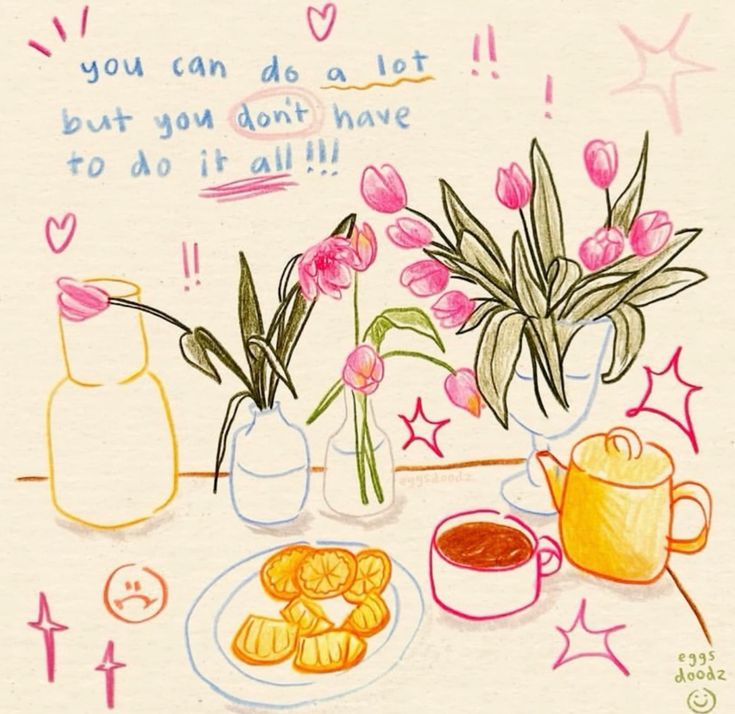 you can do a lot
but you don't have
to do it all!!!
eggsdoodz
eggs
doodz